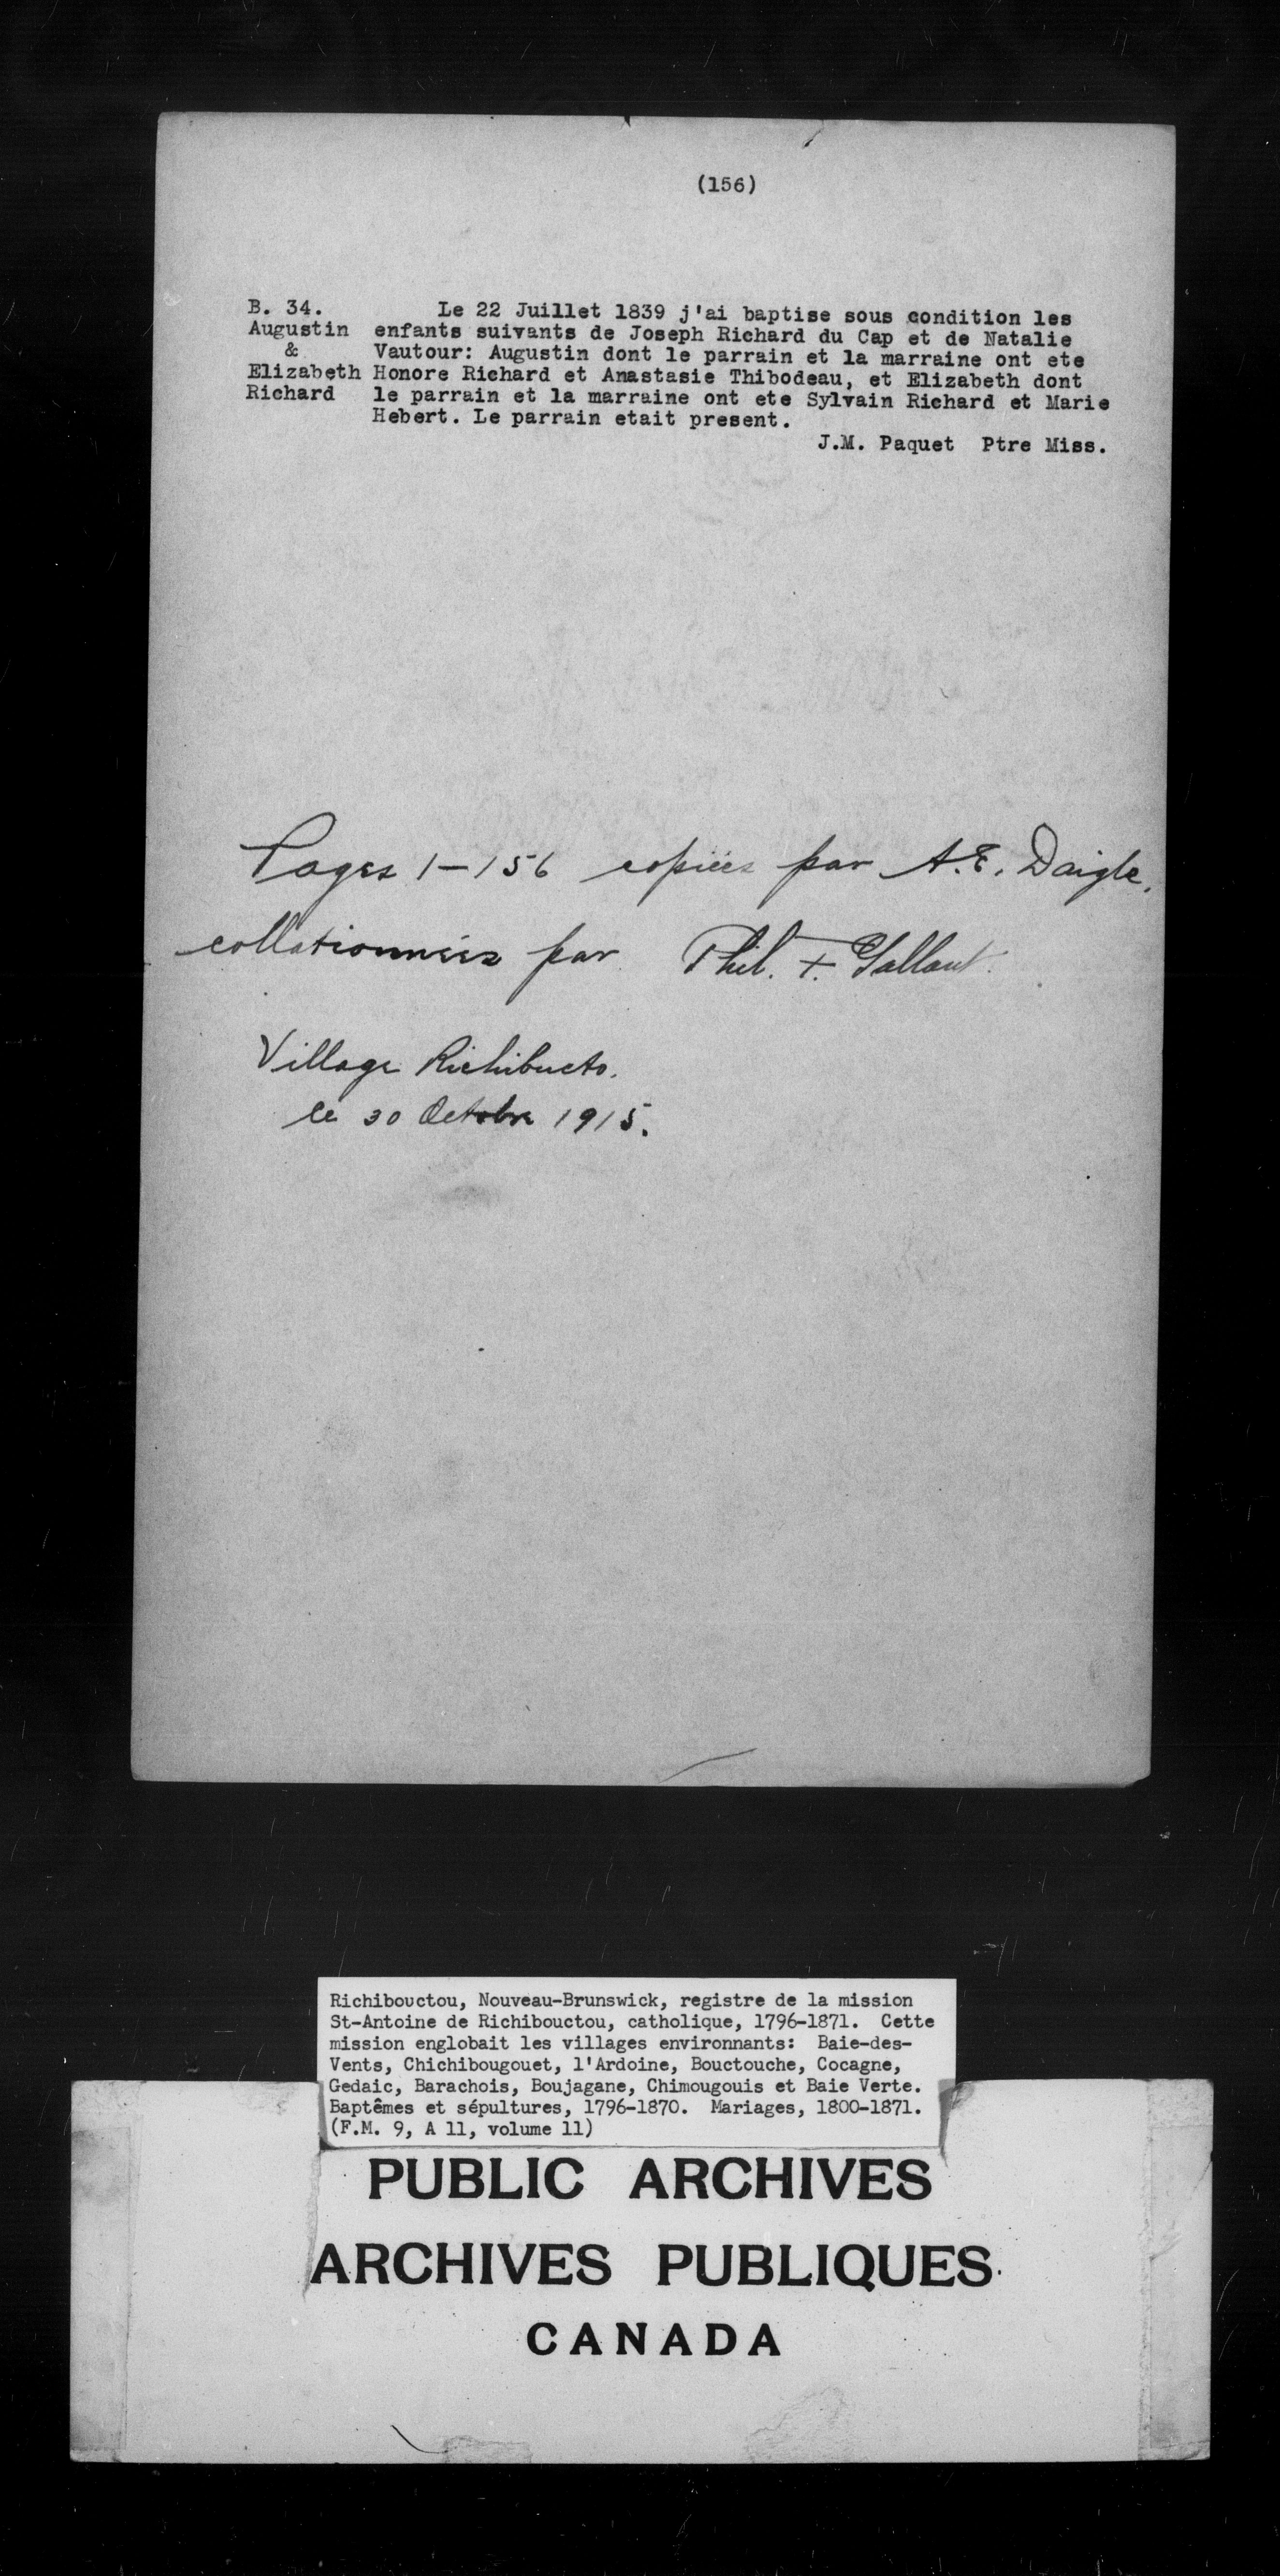 (156)
B. 34. Le 22 Juillet 1839 j'ai baptise sous condition les
Augustin enfants suivants de Joseph Richard du Cap et de Natalie
& Vautour: Augustin dont le parrain et la marraine ont ete
Elizabeth Honore Richard et Anastasie Thibodeau, et Elizabeth dont
Richard le parrain et la marraine ont ete Sylvain Richard et Marie
Hebert. Le parrain etait present.
J.M. Paquet Ptre Miss.
Pages 1-156 copiées par A.E. Daigle.
collationnées par Phil. F. Gallant.
Village Richibucto.
le 30 Octobre 1915.
Richibouctou, Nouveau-Brunswick, registre de la mission
St-Antoine de Richibouctou, catholique, 1796-1871. Cette
mission englobait les villages environnants: Baie-des-
Vents, Chichibougouet, l'Ardoine, Bouctouche, Cocagne,
Gedaic, Barachois, Boujagane, Chimougouis et Baie Verte.
Baptêmes et sépultures, 1796-1870. Mariages, 1800-1871.
(F.M. 9, A 11, volume 11)
PUBLIC ARCHIVES
ARCHIVES PUBLIQUES
CANADA